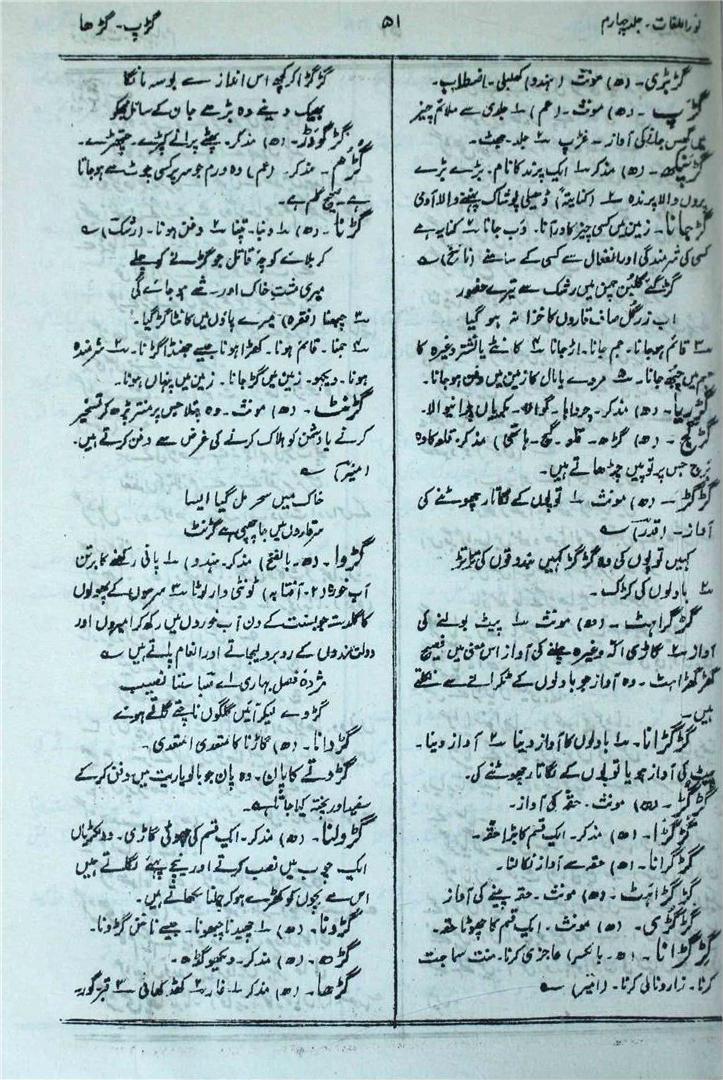 نور اللغات۔ جلد چہارم
۵۱
گڑپ۔ گڑھا
گڑبڑی۔ (ھ) مونث (ہندو) کھلبلی۔ اضطراب۔
گڑپ ۔ (ھ) مونث۔ (عم) ۱؎ جلدی سے ملائم چیز
میں گھس جانے کی آواز۔ غڑپ ۲؎ جلد۔ جھٹ۔
گڑپنکھ۔ (ھ) مذکر ۱؎ ایک پرند کا نام۔ بڑے بڑے
پروں والا پرندہ ۲؎ (کنایتہً) ڈھیلی پوشاک پہننے والا آدمی
گڑجانا۔ زمین میں کسی چیز کا در آنا۔ دَب جانا ۲؎ کنایہ ہے
کسی کی شرمندگی اور انفعال سے کسی کے سامنے (ناسخ) ؎
گڑ گئے گلبن چمن میں رشک سے تیرے حضور
اب زرِ گل صاف قاروں کا خزانہ ہو گیا
۳؎ قائم ہوجانا۔ جم جانا۔ اڑجانا ۴؎ کانٹے یا نشتر وغیرہ کا
جسم میں چبھ جانا۔ ۵؎ مردے یا مال کا زمین میں دفن ہوجانا۔
گڑریا۔ (ھ) مذکر۔ چرواہا۔ گوالہ۔ بکریاں چرانیوالا۔
گڑگج ۔ (ھ) گڑھ۔ قلعہ۔ گج۔ ہاتھی) مذکر۔ قلعہ کا وہ
برج جس پر توپیں چڑھاتے ہیں۔
گڑگڑ۔ (ھ) مونث۔ ۱؎ توپوں کے لگاتار چھوٹنے کی
آواز۔ (قدر) ؎
کہیں توپوں کی وہ گڑگڑ کہیں بندوقوں کی تڑتڑ
۲؎ بادلوں کی کڑک۔
گڑگڑاہٹ ۔ (ھ) مونث ۱؎ پیٹ بولنے کی
آواز ۲؎ گاڑی اکّہ وغیرہ چلنے کی آواز اس معنی میں فصیح
گھڑگھڑاہٹ۔ وہ آواز جو بادلوں کے ٹکرانے سے نکلتی
ہیں۔
گڑگڑانا۔ ۱؎ بادلوں کا آواز دینا ۲؎ آواز دینا۔
پیٹ کی آواز ہو یا توپوں کے لگاتار چھوٹنے کی۔
گُڑگُڑ۔ (ھ) مونث۔ حقہ کی آواز۔
گُڑگُڑا۔ (ھ) مذکر۔ ایک قسم کا بڑا حقہ۔
گڑگڑانا۔ (ھ) حقہ سے آواز نکالنا۔
گڑگڑاہٹ۔ (ھ) مونث۔ حقہ پینے کی آواز
گڑگڑی۔ (ھ) مونث۔ ایک قسم کا چھوٹا حقہ۔
گِڑگِڑانا ۔ (ھ۔ بالکسر) عاجزی کرنا۔ منت سماجت
کرنا۔ زارونالی کرنا۔ (امیر) ؎
گڑگڑا کر کچھ اس انداز سے بوسہ مانگا
بھیک دینے وہ بڑھے جان کے سائل مجھکو
گڑگوڈر۔ (ھ) مذکر۔ پھٹے پرانے کپڑے۔ چیتھڑے۔
گڑم۔ مذکر۔ (عم) وہ ورم جو سر پر کسی چوٹ سے ہوجاتا
ہے۔ صحیح گلم ہے۔
گڑنا۔ (ھ) ۱؎ دبنا۔ تپنا ۲؎ دفن ہونا۔ (رشک) ؎
کربلائے کوچہ قاتل جو گڑنے کو ملے
میری مشت خاک اور۔ شے ہو جائے گی
۳؎ چبھنا (فقرہ) میرے پاؤں میں کانٹا گڑ گیا۔
۴؎ جمنا۔ قائم ہونا۔ کھڑا ہونا جیسے جھنڈا گڑنا۔ ۵؎ شرمندہ
ہونا۔ دیکھو۔ زمین میں گڑجانا۔ زمین میں پنہاں ہونا۔
گڑنت ۔ (ھ) مونث۔ وہ پتلا جس پر منتر پڑھ کر تسخیر
کرنے یا دشمن کو ہلاک کرنے کی غرض سے دفن کرتے ہیں۔
(میر) ؎
خاک میں سحر مل گیا ایسا
مرقاروں میں جا چھپی ہے گڑنت
گڑوا۔ (ھ۔ بالفتح) مذکر۔ ہندو) ۱؎ پانی رکھنے کا برتن
آبخورہ (۲۔ آفتابہ) ٹونٹی دار لوٹا ۳؎ سرسوں کے پھولوں
کا گلدستہ جو بسنت کے دن آبخوروں میں رکھ کر امیروں اور
دولتمندوں کے روبرو لیجاتے اور انعام پاتے ہیں ؎
مژدۂ فصل بہاری اے صبا سننا نصیب
گڑوے لیکر آئیں گلگوں ناچتے گاتے ہوئے
گڑوانا۔ (ھ) گاڑنا کا متعدی المتعدی۔
گڑوتے کا پان۔ وہ پان جو بالو یا ریت میں دفن کر کے
سفید اور پختہ کیا جاتا ہے۔
گڑولنا۔ (ھ) مذکر۔ ایک قسم کی چھوٹی گاڑی۔ دو لکڑیاں
ایک چوب میں نصب کرتے اور نیچے پہیے لگاتے ہیں
اس سے بچوں کو کھڑے ہوکر چلنا سکھاتے ہیں۔
گڑونا۔ (ھ) ۱؎ چھیدنا چبھونا۔ جیسے ناخن گڑونا۔
گڑھ۔ (ھ) مذکر۔ دیکھو گڈھ۔
گڑھا۔ (ھ) مذکر ۱؎ غار ۲؎ کھڈ کھائی ۳؎ قبر گور ۴؎